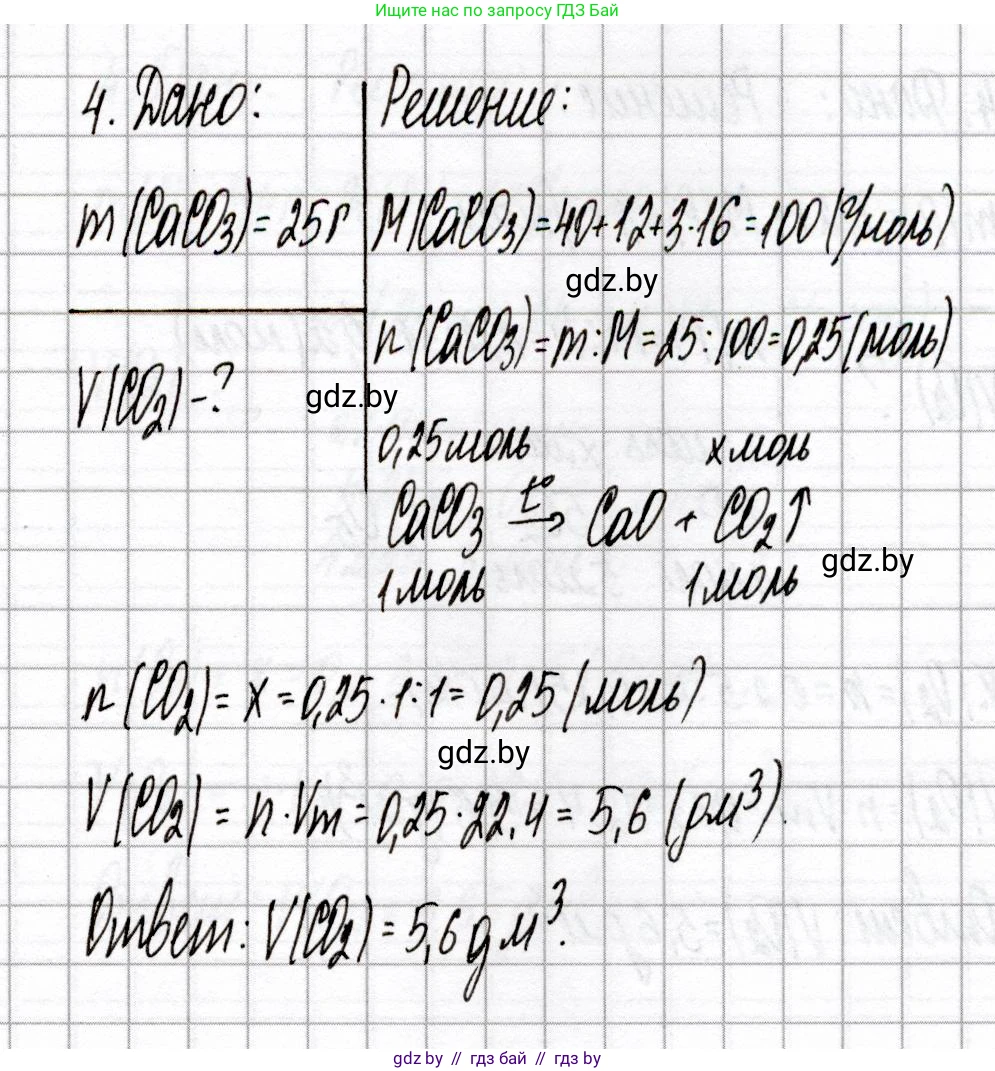 Ищите нас по запросу ГДЗ Бай
4. Дано:
Решение:
m(CaCO₃) = 25г
M(CaCO₃) = 40+12+3·16 = 100 (г/моль)
gdz.by
n(CaCO₃) = m:M = 25:100 = 0,25 (моль)
V(CO₂) - ?
gdz.by
0,25 моль x моль
CaCO₃ t°→ CaO + CO₂↑
gdz.by
1 моль 1 моль
n(CO₂) = x = 0,25·1:1 = 0,25 (моль)
gdz.by
V(CO₂) = n·Vm = 0,25·22,4 = 5,6 (дм³).
Ответ: V(CO₂) = 5,6 дм³.
gdz by // гдз бай // гдз by